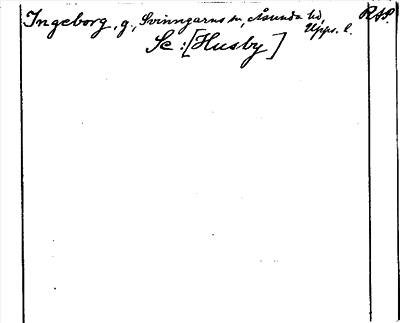 Ingeborg, g., Svinngarns sn, Åsunda hd, Upps. l.
Se: [Husby]